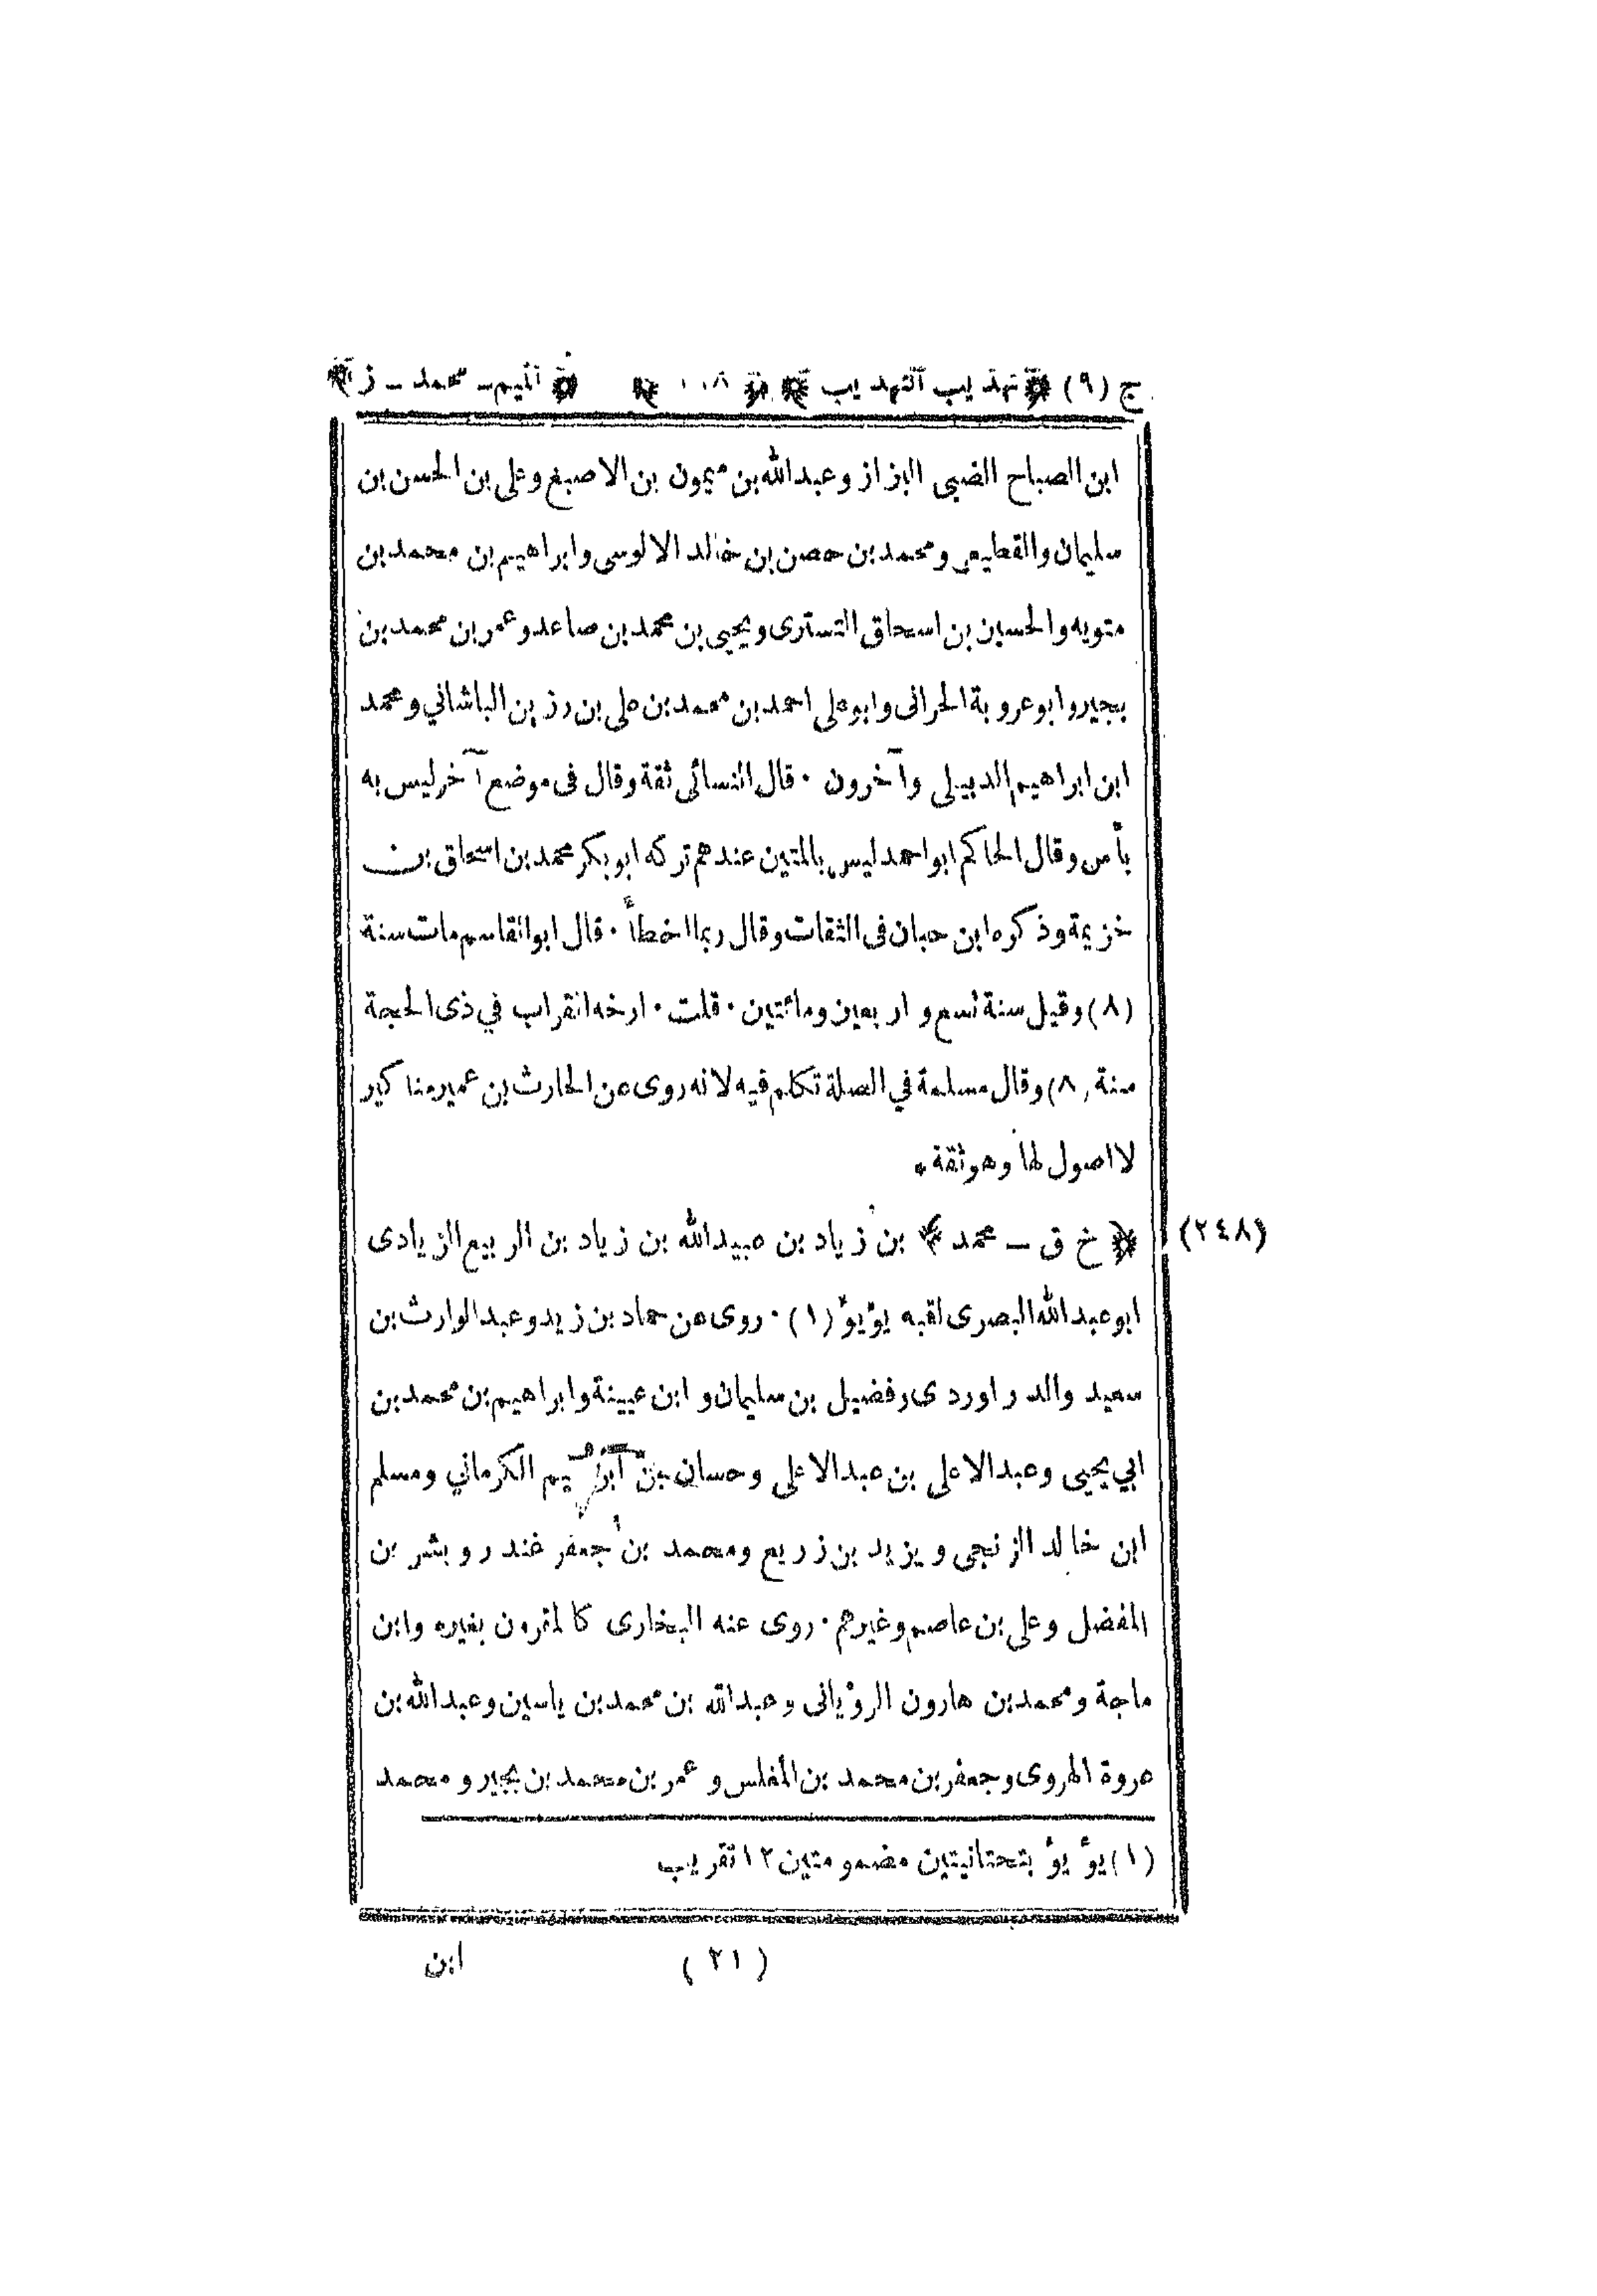 ج (٩) تهذيب التهذيب الميم - محمد - ز
ابن الصباح الضبي البزاز وعبدالله بن ميمون بن الاصبغ وعلى بن الحسن بن
سليمان والقطيعي ومحمد بن حصن بن خالد الالوسى وابراهيم بن محمد بن
متويه والحسين بن اسحاق التسترى ويحيى بن محمد بن صاعد وعمر بن محمد بن
بجير وابو عروبة الحرانى وابو على احمد بن محمد بن على بن رزين الباشاني ومحمد
ابن ابراهيم الديبلى وآخرون ٠ قال النسائى ثقة وقال فى موضع آخر ليس به
بأس وقال الحاكم ابو احمد ليس بالمتين عندهم تركه ابو بكر محمد بن اسحاق بن
خزيمة وذكره ابن حبان فى الثقات وقال ربما اخطأ ٠ قال ابو القاسم مات سنة
(٨) وقيل سنة تسع واربعين ومائتين ٠ قلت ٠ ارخه القراب في ذى الحجة
سنة (٨) وقال مسلمة في الصلة تكلم فيه لانه روى عن الحارث بن عمير مناكير
لا اصول لها وهو ثقة ٠
(٢٤٨) ﴿ خ ق - محمد ﴾ بن زياد بن عبيدالله بن زياد بن الربيع الزيادى
ابو عبدالله البصرى لقبه يؤيؤ (١) ٠ روى عن حماد بن زيد وعبد الوارث بن
سعيد والدراوردى وفضيل بن سليمان وابن عيينة وابراهيم بن محمد بن
ابي يحيى وعبدالاعلى بن عبدالاعلى وحسان بن ابراهيم الكرماني ومسلم
ابن خالد الزنجى ويزيد بن زريع ومحمد بن جعفر غندر وبشر بن
المفضل وعلى بن عاصم وغيرهم ٠ روى عنه البخارى كالمقرون بغيره وابن
ماجة ومحمد بن هارون الرؤيانى وعبدالله بن محمد بن ياسين وعبدالله بن
عروة الهروى وجعفر بن محمد بن المغلس وعمر بن محمد بن بجير ومحمد
(١) يؤيؤ بتحتانيتين مضمومتين ١٢ تقريب
(٢١) ابن